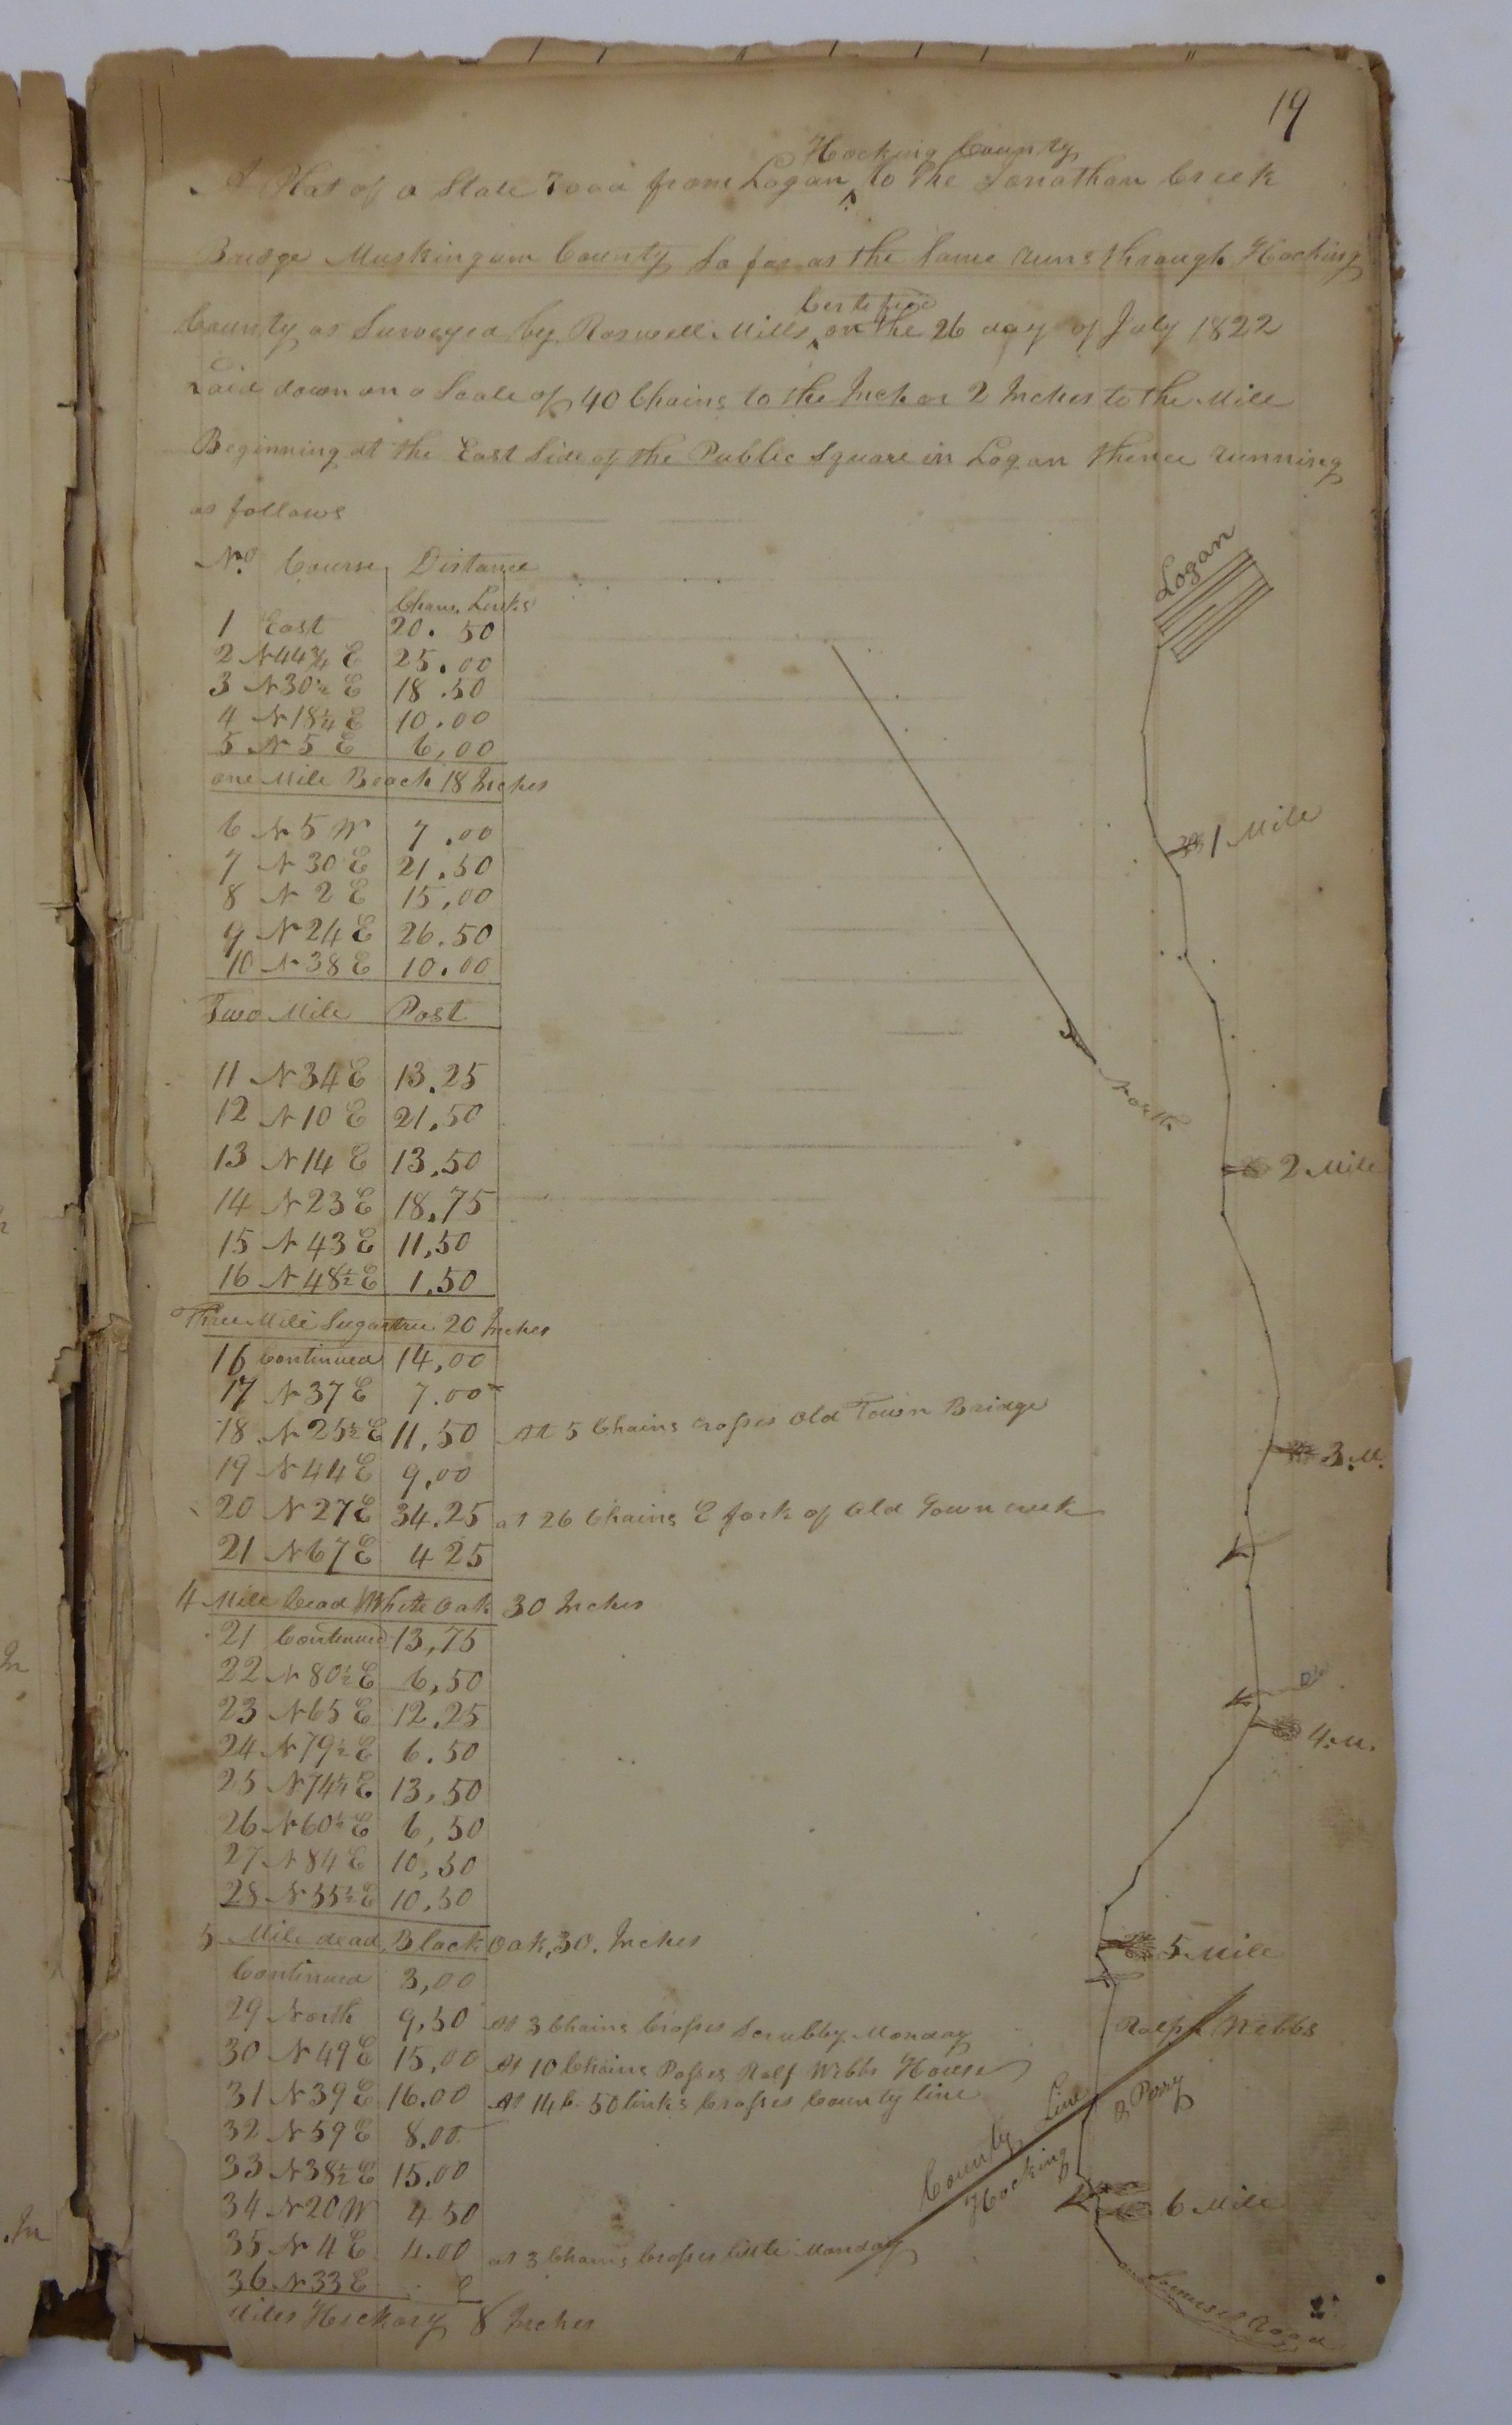 19
Hocking County
A Plat of a State Road from Logan ^ to the Jonathan Creek
Bridge Muskingum County So far as the Same runs through Hocking
Certified
County as Surveyed by Roswell Mills ^ on the 26 day of July 1822
Laid down on a Scale of 40 Chains to the Inch or 2 Inches to the Mile
Beginning at the East Side of the Public Square in Logan thence running
as follows
No. Course Distance
Chans. Links
1 East 20. 50
2 N 44 3/4 E 25.00
3 N 30 1/2 E 18.50
4 N 18 1/4 E 10.00
5 N 5 E 6,00
one Mile Beach 18 Inches
6 N 5 W 7.00
7 N 30 E 21.50
8 N 2 E 15,00
9 N 24 E 26.50
10 N 38 E 10.00
Two Mile Post
11 N 34 E 13.25
12 N 10 E 21,50
13 N 14 E 13.50
14 N 23 E 18.75
15 N 43 E 11,50
16 N 48 1/2 E 1.50
Three Mile Sugartree 20 Inches
16 Continued 14,00
17 N 37 E 7.00
18 N 25 1/2 E 11,50 At 5 Chains crosses Old Town Bridge
19 N 44 E 9,00
20 N 27 E 34.25 at 26 Chains E fork of Old Town creek
21 N 67 E 4 25
4 Mile Dead White Oak 30 Inches
21 Continued 13,75
22 N 80 1/2 E 6,50
23 N 65 E 12.25
24 N 79 1/2 E 6.50
25 N 74 1/4 E 13,50
26 N 60 1/2 E 6,50
27 N 84 E 10,50
28 N 55 1/2 E 10,50
5 Mile dead Black Oak, 30. Inches
Continued 3,00
29 North 9,50 At 3 Chains Crosses Scrubby Monday
30 N 49 E 15,00 At 10 Chains Passes Ralf Webbs House
31 N 39 E 16.00 At 14 C. 50 links Crosses County line
32 N 59 E 8.00
33 N 38 1/2 E 15.00
34 N 20 W 4 50
35 N 4 E 4.00 at 3 Chains Crosses little Monday
36 N 33 E
Miles Hickory 8 Inches
Logan
1 Mile
North
2 Mile
3.M.
4.M.
5 Mile
Ralph Webbs
County Line
Hocking
Perry
6 Mile
Somerset Road